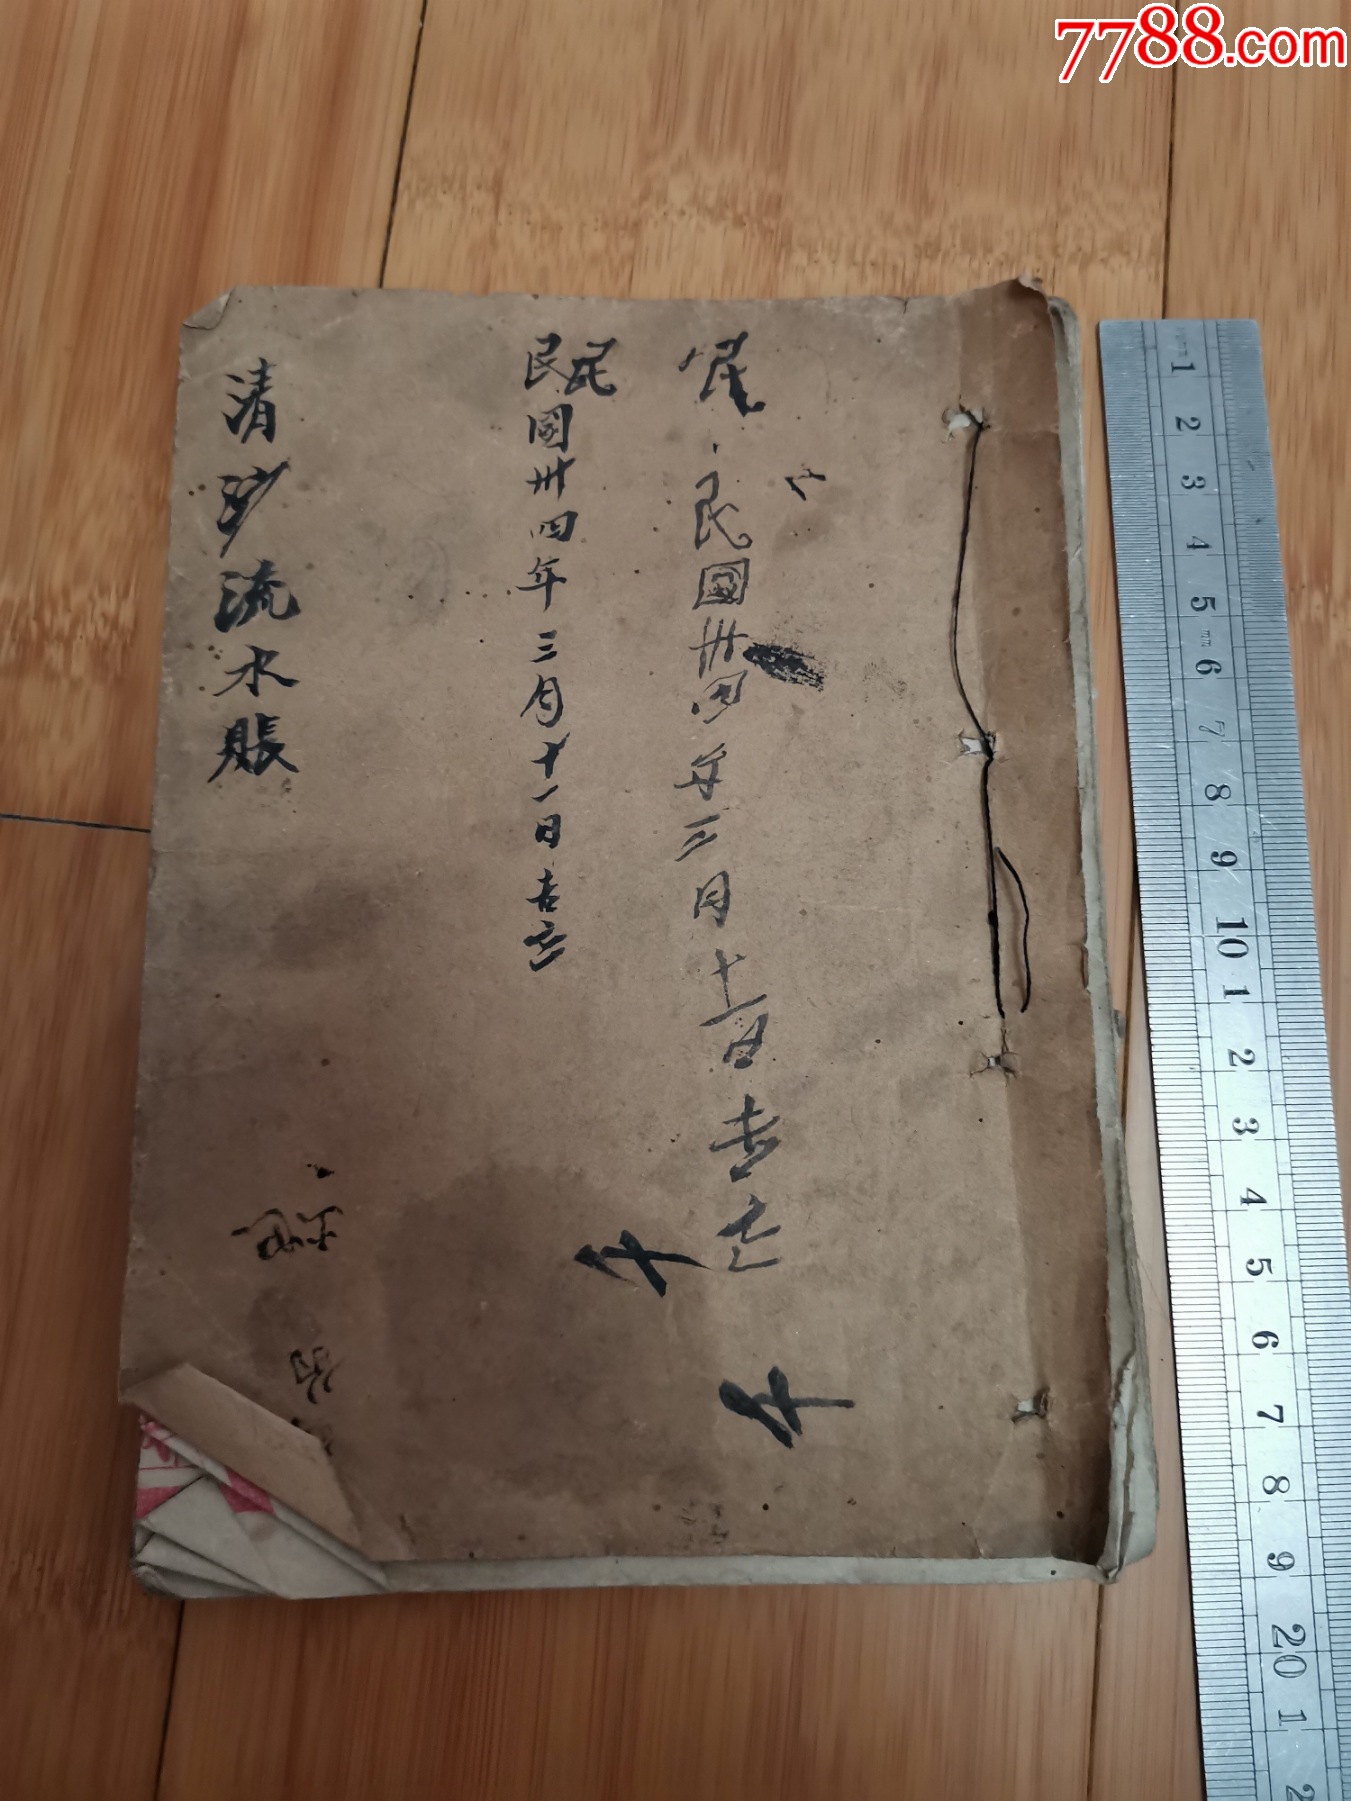 7788.com
民
民國卅四年三月十一日吉立
民
民國卅四年三月十一日吉立
清沙流水賬
1 2 3 4 5 6 7 8 9 10 1 2 3 4 5 6 7 8 9 20 1